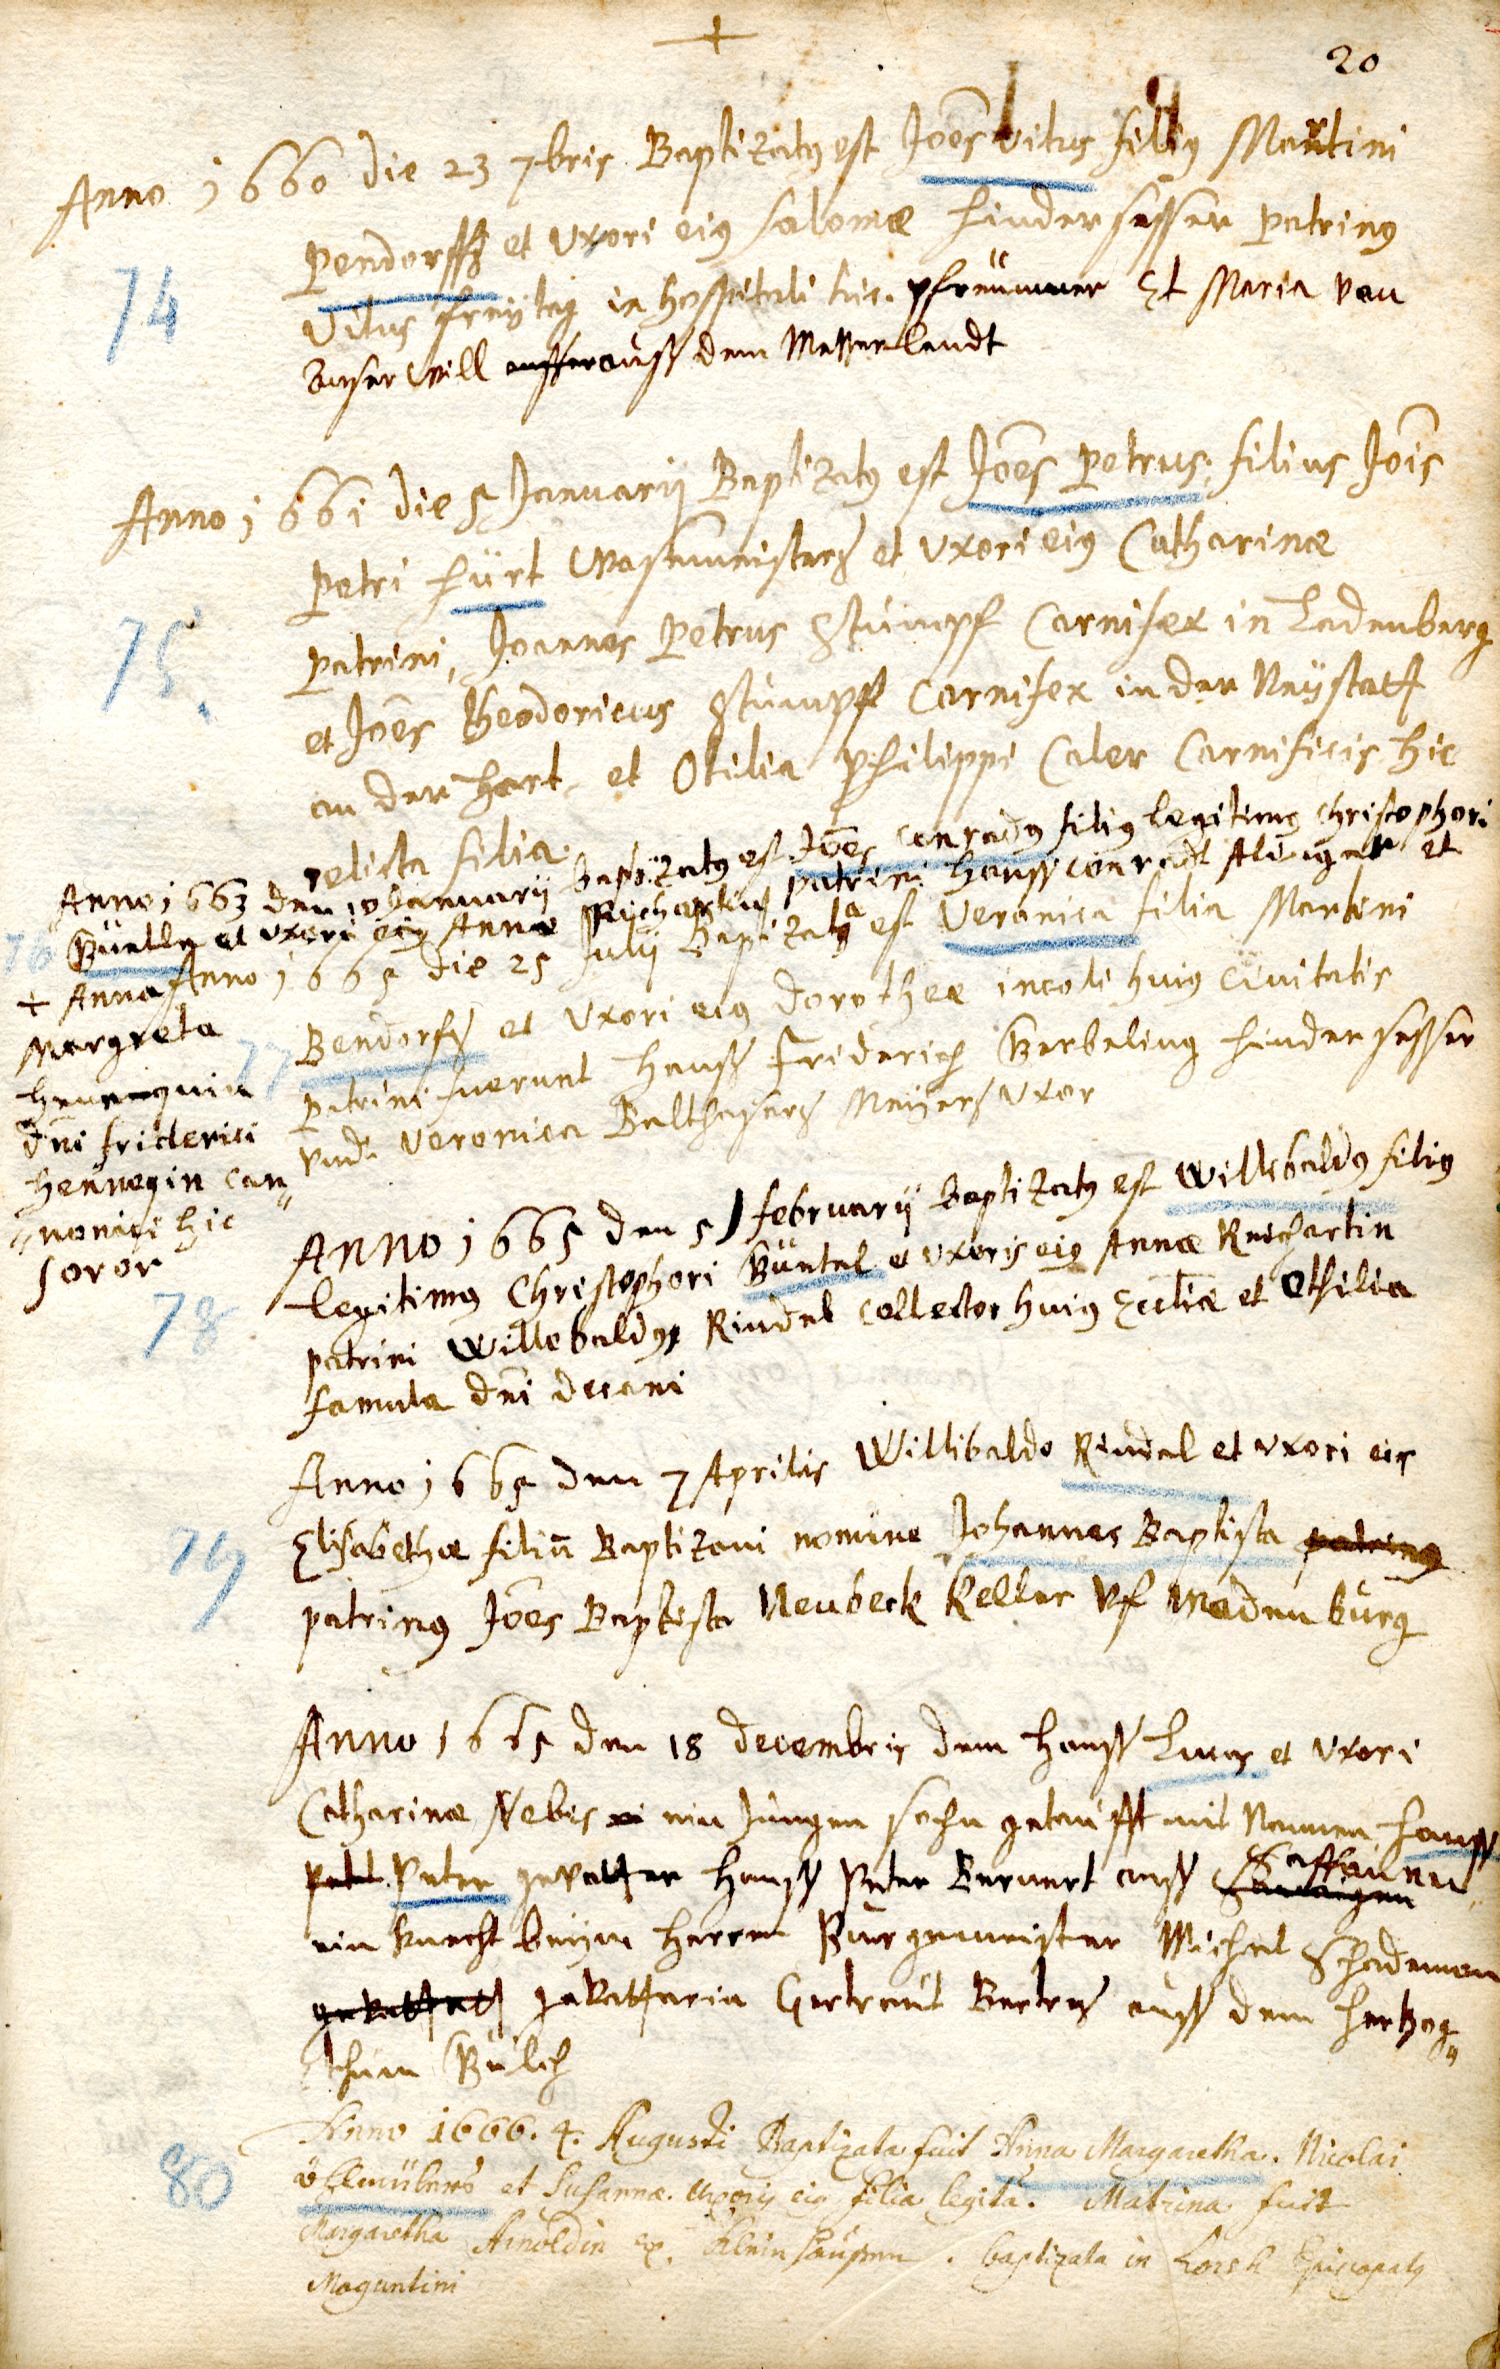 20
Anno 1660 die 23 7bris Baptizatus est Joes vitus filius Martini
Pendorffs et Uxori eius Salomæ hindersesser Patrinus
Vitus freytag in hospitali hic. pfreümner Et Maria von
auß dem Messerlandt
74
Anno 1661 die 5 Januarij Baptizatus est Joes Petrus, filius Jois
Petri fürt et Uxori eius Catharinæ
75.
patrini, Joannes Petrus Stümpf Carnifex in Ladenburg
et Joes theodoricus Stümpff Carnifex in der Neystatt
an der hart, et Otilia Philippi Caler Carnificis hic
relicta filia.
Anno 1663 den 10 Januarij baptizatus est Joes conradus filius legitimus christophori
76 Büntels et uxori eius Annæ patrini hanß conradt et
+ Anna
Margreta
dni friderici
hennegin can„
„nonici hic
soror
Anno 1665 die 25 Julij Baptizata est Veronica filia Martini
Bendorfs et Uxori eius dorotheæ incoli huius Civitatis
77
patrini fuerunt hanß friderich hindersesser
vnd Veronica Balthasers Meijers Uxor
Anno 1665 den 5 februarij Baptizatus est Willebaldus filius
legitimus Christophori Büntel et uxoris eius Annæ Reichartin
78
patrini Willebaldus Rindel collector huius Eccliæ et Othilia
famula dni decani
Anno 1665 den 7 Aprilis Willibaldo Rindel et uxori eis
79
Elisabethæ filiũ Baptizavi nomine Johannes Baptista patrinus
patrinus Joes Baptista Neubeck Keller Vf Madenburg
Anno 1665 den 18 decembris dem hanß Lucas et Uxori
Catharinæ Nebis ein Jungen sohn getaufft mit Namen hanß
Peter gevatter hanß Peter Bernert auß
ein knecht beijm Herren Burgemeister Michel Schademan
gevatterin Gertraut auß dem hertzog„
thum Gülch
80
Anno 1666. 4. Augusti Baptizata fuit Anna Margaretha. Nicolai
et Susannæ uxoris eius filia legita. Matrina fuit
Margaretha Arnoldin ex Klein haußen. baptizata in Lorsch Episcopatus
Moguntini